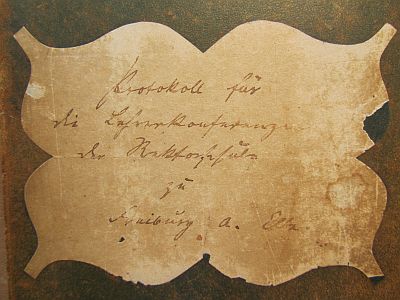 Protokoll für
die Lehrerkonferenzen
der Rektorschule
zu
Freiburg a. Elbe